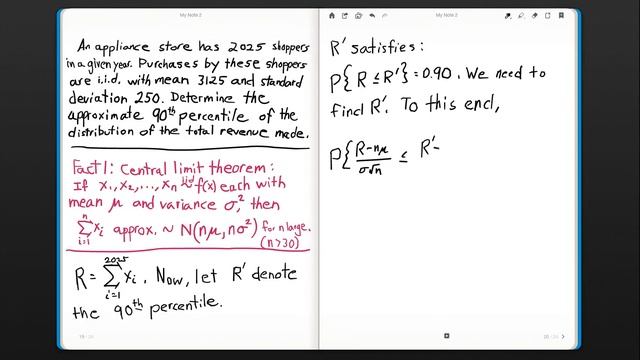 My Note 2
An appliance store has 2025 shoppers
in a given year. Purchases by these shoppers
are i.i.d. with mean 3125 and standard
deviation 250. Determine the
approximate 90th percentile of the
distribution of the total revenue made.
Fact 1: Central limit theorem:
If X₁, X₂, ..., Xₙ iid ~ f(x) each with
mean μ and variance σ², then
n Σ i=1 Xᵢ approx. ~ N(nμ, nσ²) for n large.
(n>30)
R = 2025 Σ i=1 Xᵢ. Now, let R' denote
the 90th percentile.
My Note 2
R' satisfies:
P{R ≤ R'} = 0.90. We need to
find R'. To this end,
P{ R-nμ / σ√n ≤ R'-